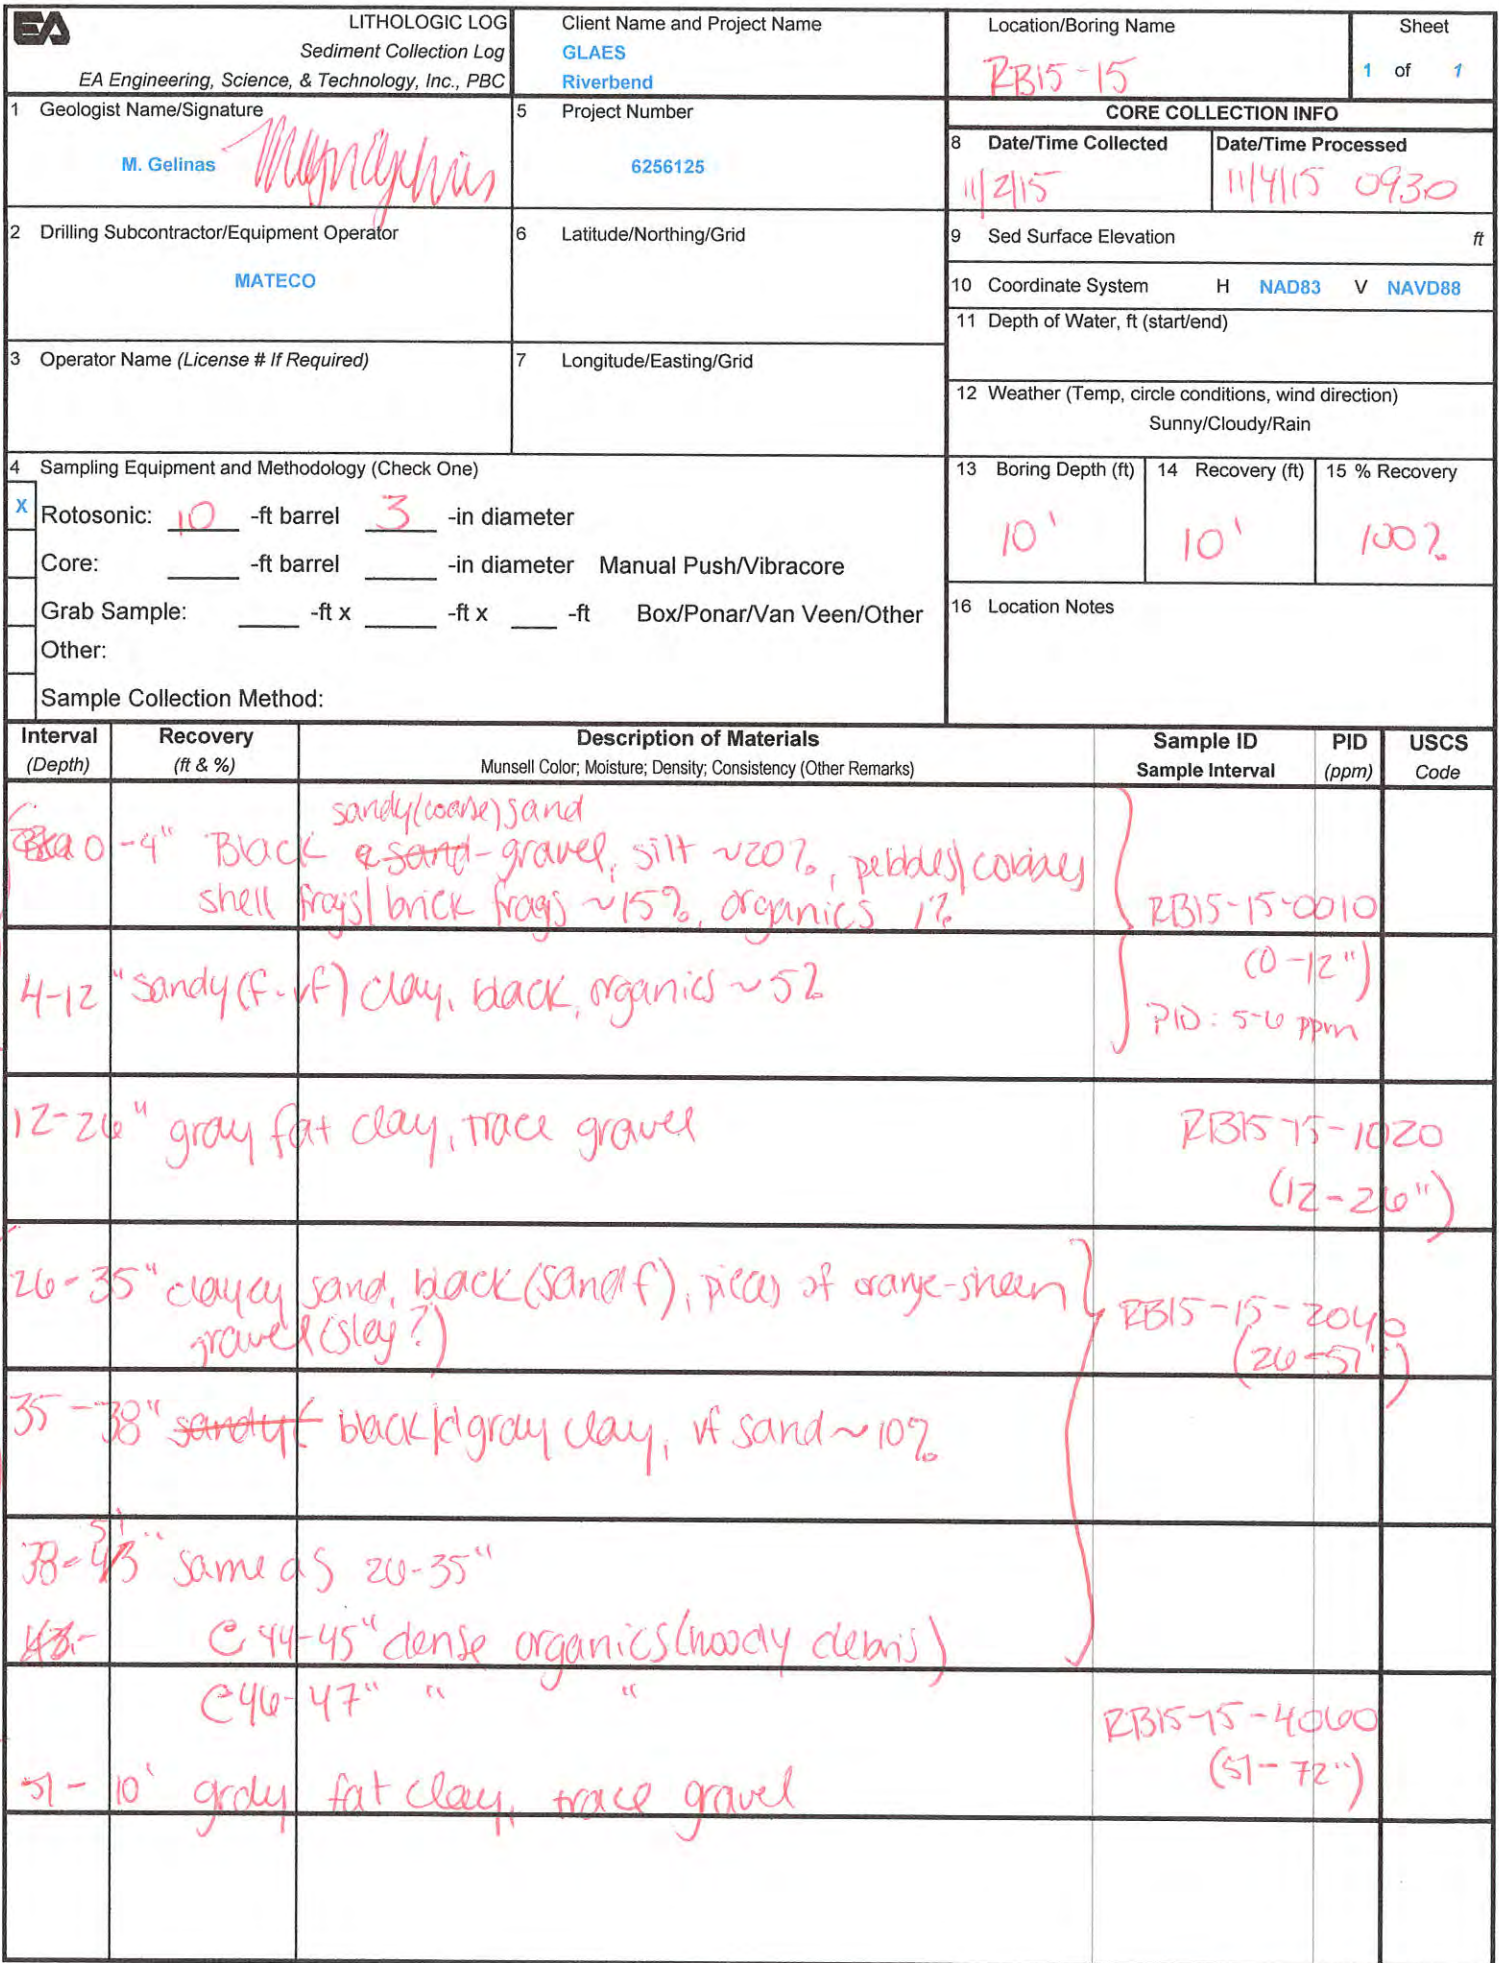 EA
LITHOLOGIC LOG
Sediment Collection Log
EA Engineering, Science, & Technology, Inc., PBC
Client Name and Project Name
GLAES
Riverbend
Location/Boring Name
RB15-15
Sheet
1 of 1
1 Geologist Name/Signature
M. Gelinas
5 Project Number
6256125
CORE COLLECTION INFO
8 Date/Time Collected
11/2/15
Date/Time Processed
11/4/15 0930
2 Drilling Subcontractor/Equipment Operator
MATECO
6 Latitude/Northing/Grid
9 Sed Surface Elevation ft
10 Coordinate System H NAD83 V NAVD88
11 Depth of Water, ft (start/end)
3 Operator Name (License # If Required)
7 Longitude/Easting/Grid
12 Weather (Temp, circle conditions, wind direction)
Sunny/Cloudy/Rain
4 Sampling Equipment and Methodology (Check One)
X Rotosonic: 10 -ft barrel 3 -in diameter
Core: ____ -ft barrel ____ -in diameter Manual Push/Vibracore
Grab Sample: ____ -ft x ____ -ft x ____ -ft Box/Ponar/Van Veen/Other
Other:
Sample Collection Method:
13 Boring Depth (ft)
10'
14 Recovery (ft)
10'
15 % Recovery
100%
16 Location Notes
Interval (Depth)
Recovery (ft & %)
Description of Materials
Munsell Color; Moisture; Density; Consistency (Other Remarks)
Sample ID
Sample Interval
PID (ppm)
USCS Code
sandy (coarse) sand
0-4" Black sand - gravel, silt ~20%, pebbles/cobbles
shell frags/brick frags ~15%, organics 1%
RB15-15-0010
(0-12")
4-12" sandy (f-vf) clay, black, organics ~5%
PID: 5-6 ppm
12-26" gray fat clay, trace gravel
RB15-15-1020
(12-26")
26-35" clayey sand, black (sand f), pieces of orange-sheen
gravel (slag?)
RB15-15-2040
(26-51")
35-38" sandy black/dgray clay, vf sand ~10%
51
38-43" same as 26-35"
43- @ 44-45" dense organics (woody debris)
@ 46-47" " "
RB15-15-4060
(51-72")
51-10' gray fat clay, trace gravel